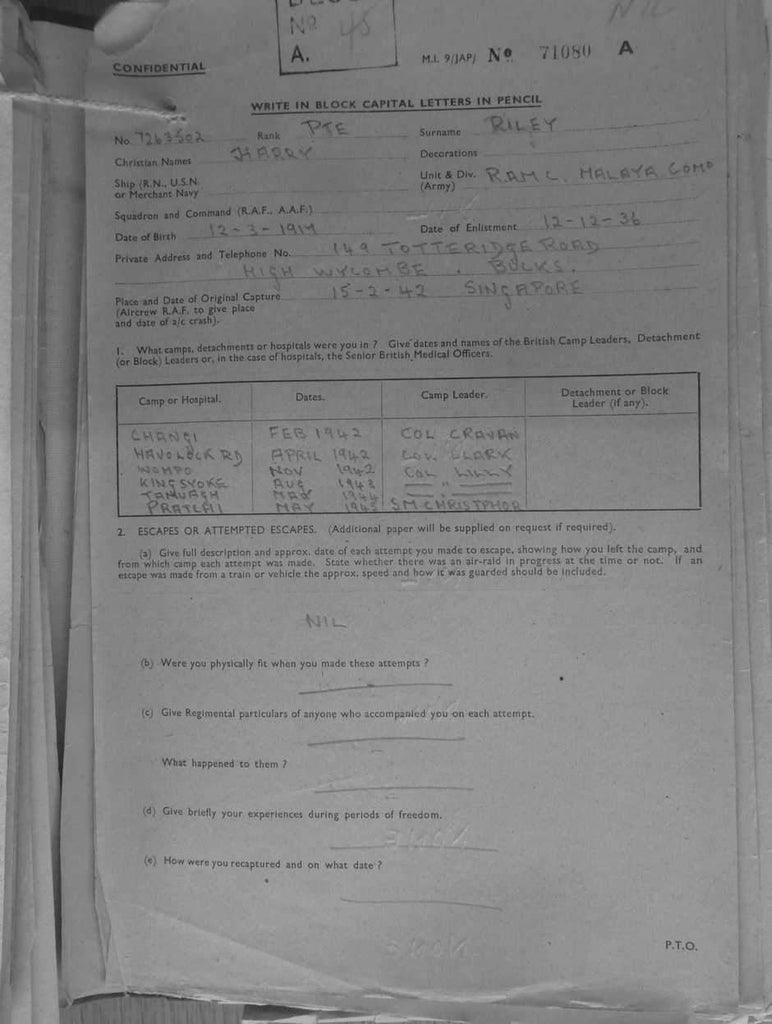 Nº 45
NIL
A.
M.I. 9/JAP/ Nº 71080 A
CONFIDENTIAL
WRITE IN BLOCK CAPITAL LETTERS IN PENCIL
No. 7263502 Rank PTE Surname RILEY
Christian Names HARRY Decorations
Ship (R.N., U.S.N. or Merchant Navy
Unit & Div. (Army) R.A.M.C. MALAYA COMD
Squadron and Command (R.A.F., A.A.F.)
Date of Birth 12-3-1917 Date of Enlistment 12-12-36
Private Address and Telephone No. 149 TOTTERIDGE ROAD
HIGH WYCOMBE. BUCKS.
Place and Date of Original Capture 15-2-42 SINGAPORE
(Aircrew R.A.F. to give place
and date of a/c crash).
1. What camps, detachments or hospitals were you in ? Give dates and names of the British Camp Leaders, Detachment
(or Block) Leaders or, in the case of hospitals, the Senior British Medical Officers.
Camp or Hospital. Dates. Camp Leader. Detachment or Block Leader (if any).
CHANGI FEB 1942 COL CRAVAN
HAVOLOCK RD APRIL 1942 COL. CLARK
WOMPO NOV 1942 COL LILLY
KINGSYOKE AUG 1943 " "
TAMUAGH MAY 1944
PRATCHI MAY 1945 S.M CHRISTPHOR
2. ESCAPES OR ATTEMPTED ESCAPES. (Additional paper will be supplied on request if required).
(a) Give full description and approx. date of each attempt you made to escape, showing how you left the camp, and
from which camp each attempt was made. State whether there was an air-raid in progress at the time or not. If an
escape was made from a train or vehicle the approx. speed and how it was guarded should be included.
NIL
(b) Were you physically fit when you made these attempts ?
(c) Give Regimental particulars of anyone who accompanied you on each attempt.
What happened to them ?
(d) Give briefly your experiences during periods of freedom.
(e) How were you recaptured and on what date ?
P.T.O.